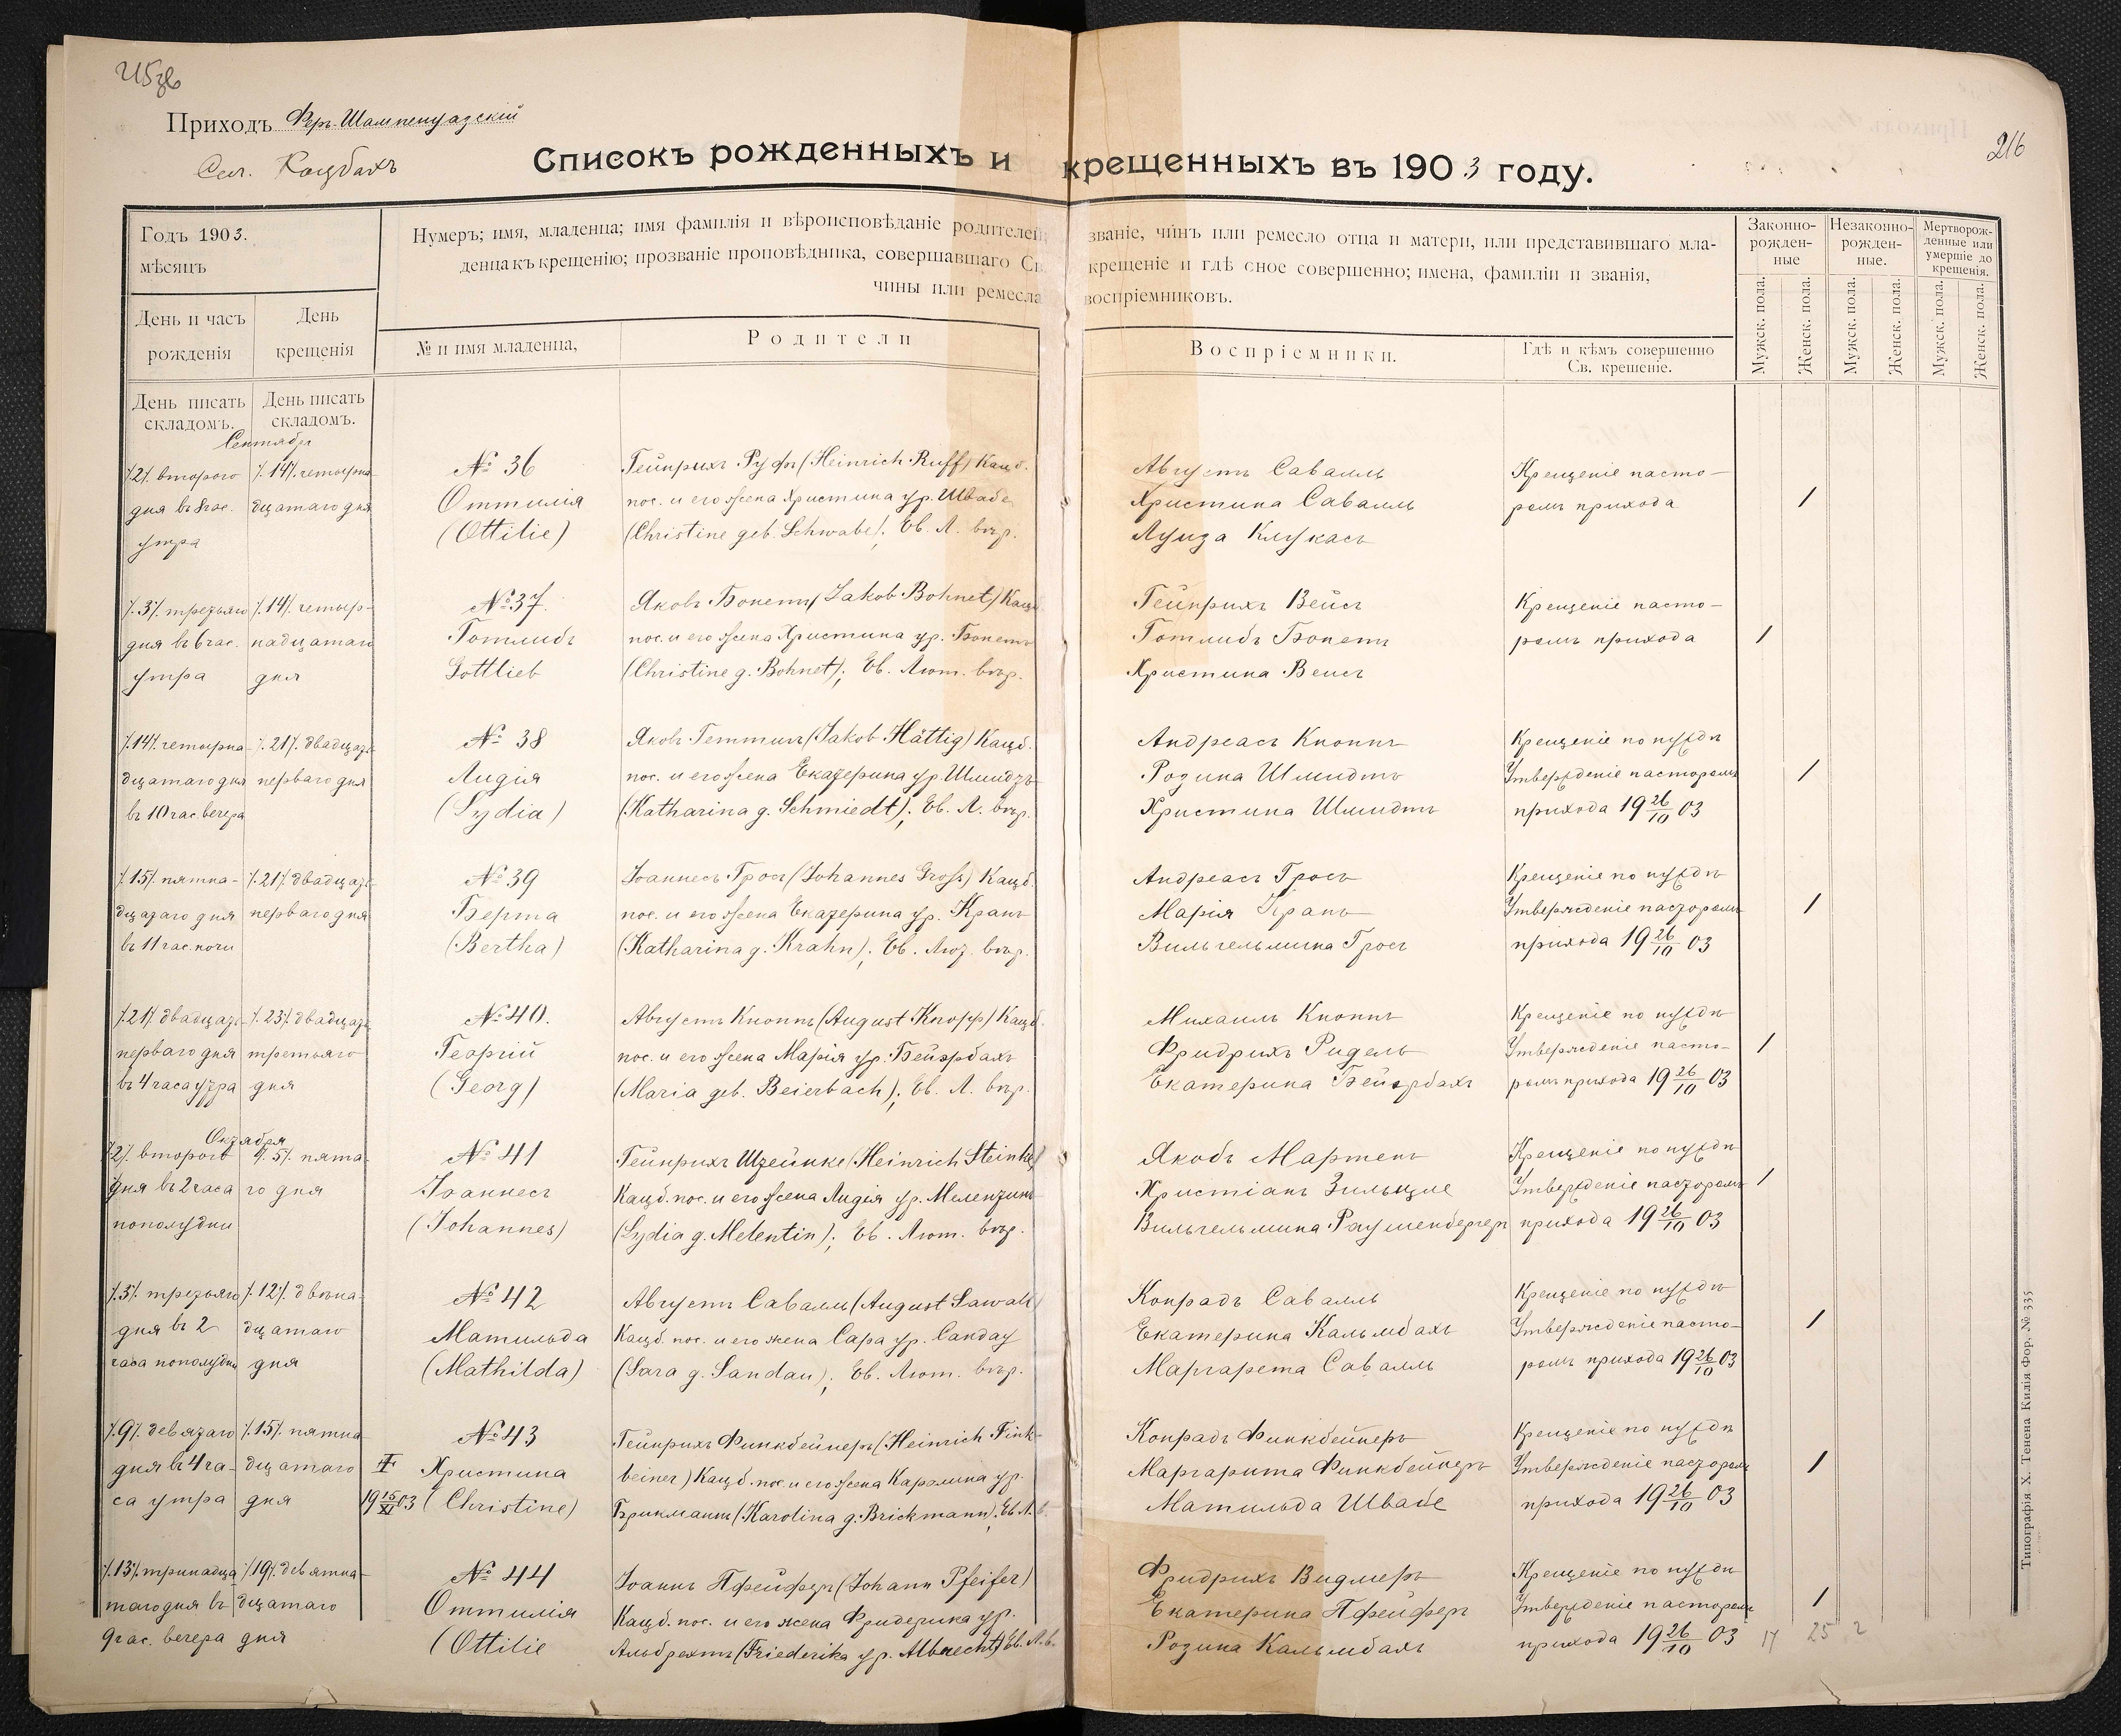 Приходъ Фер. Шампенуазскій
216
Сел. Кацбахъ
Списокъ рожденныхъ и крещенныхъ въ 1903 году.
Годъ 1903.
мѣсяцъ
Нумеръ; имя, младенца; имя фамилія и вѣроисповѣданіе родителей; званіе, чинъ или ремесло отца и матери, или представившаго мла-
денца къ крещенію; прозваніе проповѣдника, совершавшаго Св. крещеніе и гдѣ сное совершенно; имена, фамиліи и званія,
чины или ремесла воспріемниковъ.
Законно-
рожден-
ные
Незаконно-
рожден-
ные.
Мертворож-
денные или
умершіе до
крещенія.
День и часъ
рожденія
День
крещенія
№ и имя младенца,
Родители
Воспріемники.
Гдѣ и кѣмъ совершенно
Св. крещеніе.
Мужск. пола.
Женск. пола.
Мужск. пола.
Женск. пола.
Мужск. пола.
Женск. пола.
День писать
складомъ.
День писать
складомъ.
Сентября
/.2/. второго
дня въ 8 час.
утра
/.14/. четырна-
дцатаго дня
№ 36
Оттилія
(Ottilie)
Гейнрихъ Руфъ (Heinrich Ruff) Кацб.
пос. и его жена Христина ур. Швабе
(Christine geb. Schwabe); Ев. Л. вѣр.
Августъ Савалль
Христина Савалль
Луиза Клукасъ
Крещеніе пасто-
ромъ прихода
/
/.3/. третьяго
дня въ 6 час.
утра
/.14/. четыр-
надцатаго
дня
№ 37.
Готлибъ
Gottlieb
Яковъ Бонетъ (Jakob Bohnet) Кацб.
пос. и его жена Христина ур. Бонетъ
(Christine g. Bohnet); Ев. Лют. вѣр.
Гейнрихъ Вейсъ
Готлибъ Бонетъ
Христина Веисъ
Крещеніе пасто-
ромъ прихода
/
/.14/. четырна-
дцатаго дня
въ 10 час. вечера
/.21/. двадцать
перваго дня
№ 38
Лидія
(Lydia)
Яковъ Геттигъ (Jakob Hättig) Кацб.
пос. и его жена Екатерина ур. Шмидтъ
(Katharina g. Schmiedt); Ев. Л. вѣр.
Андреасъ Кноппъ
Розина Шмидтъ
Христина Шмидтъ
Крещеніе по нуждѣ
Утвержденіе пасторомъ
прихода 19 26/10 03
/
/.15/. пятна-
дцатаго дня
въ 11 час. ночи
/.21/. двадцать
перваго дня
№ 39
Берта
(Bertha)
Іоаннесъ Гросъ (Johannes Groß) Кацб.
пос. и его жена Екатерина ур. Кранъ
(Katharina g. Krahn); Ев. Лют. вѣр.
Андреасъ Гросъ
Марія Кранъ
Вильгельмина Гросъ
Крещеніе по нуждѣ
Утвержденіе пасторомъ
прихода 19 26/10 03
/
/.21/. двадцать
перваго дня
въ 4 часа утра
/.23/. двадцать
третьяго
дня
№ 40.
Георгій
(Georg)
Августъ Кноппъ (August Knopp) Кацб.
пос. и его жена Марія ур. Бейэрбахъ
(Maria geb. Beierbach); Ев. Л. вѣр.
Михаилъ Кноппъ
Фридрихъ Ридель
Екатерина Бейэрбахъ
Крещеніе по нуждѣ
Утвержденіе пасто-
ромъ прихода 19 26/10 03
/
Октября
/.2/. второго
дня въ 2 часа
пополудни
/.5/. пята-
го дня
№ 41
Іоаннесъ
(Johannes)
Гейнрихъ Штейнке (Heinrich Steinke)
Кацб. пос. и его жена Лидія ур. Мелентинъ
(Lydia g. Melentin); Ев. Лют. вѣр.
Якобъ Мартенъ
Христіанъ Зильцле
Вильгельмина Раушенбергеръ
Крещеніе по нуждѣ
Утвержденіе пасторомъ
прихода 19 26/10 03
/
/.3/. третьяго
дня въ 2
часа пополудни
/.12/. двѣна-
дцатаго
дня
№ 42
Матильда
(Mathilda)
Августъ Савалль (August Sawall)
Кацб. пос. и его жена Сара ур. Сандау
(Sara g. Sandau); Ев. Лют. вѣр.
Конрадъ Савалль
Екатерина Кальмбахъ
Маргарета Савалль
Крещеніе по нуждѣ
Утвержденіе пасто-
ромъ прихода 19 26/10 03
/
/.9/. девятаго
дня въ 4 ча-
са утра
/.15/. пятна-
дцатаго
дня
19 15/XI 03
№ 43
Христина
(Christine)
Гейнрихъ Финкбейнеръ (Heinrich Fink-
beiner) Кацб. пос. и его жена Каролина ур.
Брикманнъ (Karolina g. Brickmann); Ев. Л. в.
Конрадъ Финкбейнеръ
Маргарита Финкбейнеръ
Матильда Швабе
Крещеніе по нуждѣ
Утвержденіе пасторомъ
прихода 19 26/10 03
/
/.13/. тринадца-
таго дня въ
9 час. вечера
/.19/. девятна-
дцатаго
дня
№ 44
Оттилія
(Ottilie
Іоаннъ Пфейферъ (Johann Pfeifer)
Кацб. пос. и его жена Фридерика ур.
Альбрехтъ (Friederika ур. Albrecht) Ев. Л. в.
Фридрихъ Видмеръ
Екатерина Пфейферъ
Розина Кальмбахъ
Крещеніе по нуждѣ
Утвержденіе пасторомъ
прихода 19 26/10 03
/
17 25 2
Типографія Х. Тенена Килія Фор. № 335